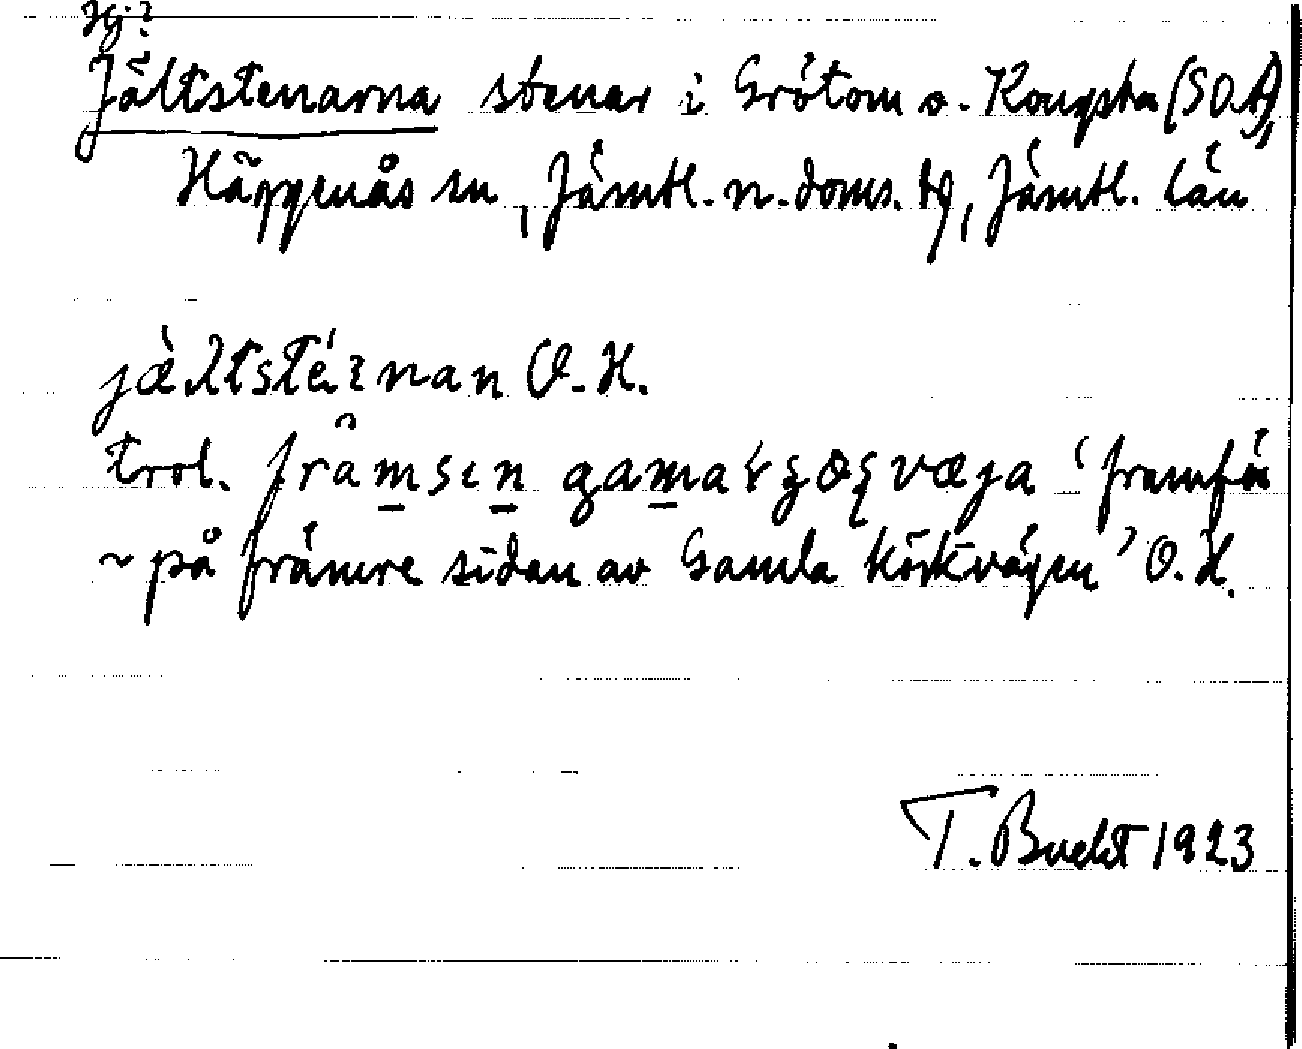 Hj?
Jältstenarna stenar i Grötom o. Kougsta (SO.A),
Häggenås sn, Jämtl. n. doms. tg, Jämtl. län
jæ̀ltste᷄nan O. H.
trol. frâmsın gama
~ på främre sidan av Gamla Körkvägen' O. H.
T. Bucht 1923